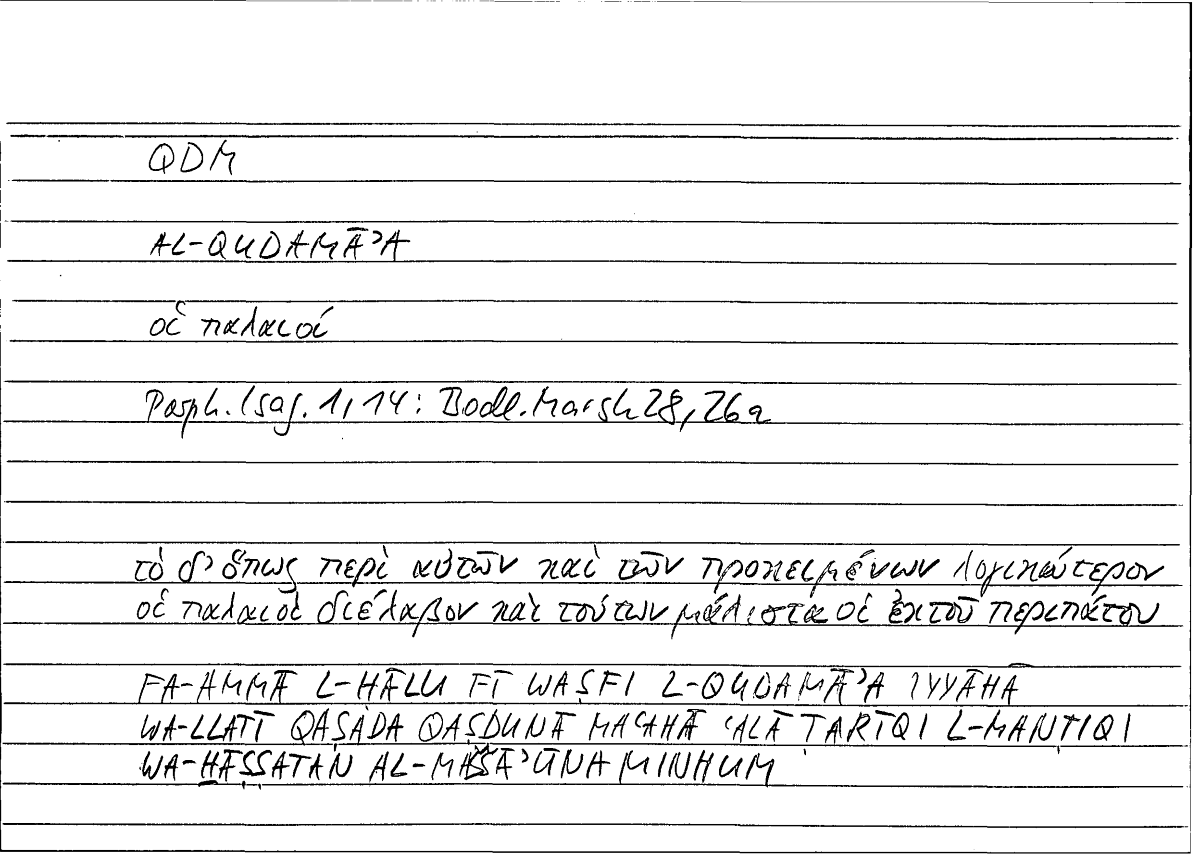 QDM
AL-QUDAMĀʾA
οἱ παλαιοί
Porph. Isag. 1,14: Bodl. Marsh 28, 26a
τὸ δ' ὅπως περὶ αὐτῶν καὶ τῶν προκειμένων λογικώτερον
οἱ παλαιοὶ διέλαβον καὶ τούτων μάλιστα οἱ ἐκ τοῦ περιπάτου
FA-AMMĀ L-HĀLU FĪ WAṢFI L-QUDAMĀʾA IYYĀHĀ
WA-LLATĪ QAṢADA QAṢDUNĀ MAʿAHĀ ʿALĀ ṬARĪQI L-MANṬIQI
WA-ḪĀṢṢATAN AL-MAŠŠĀʾŪNA MINHUM